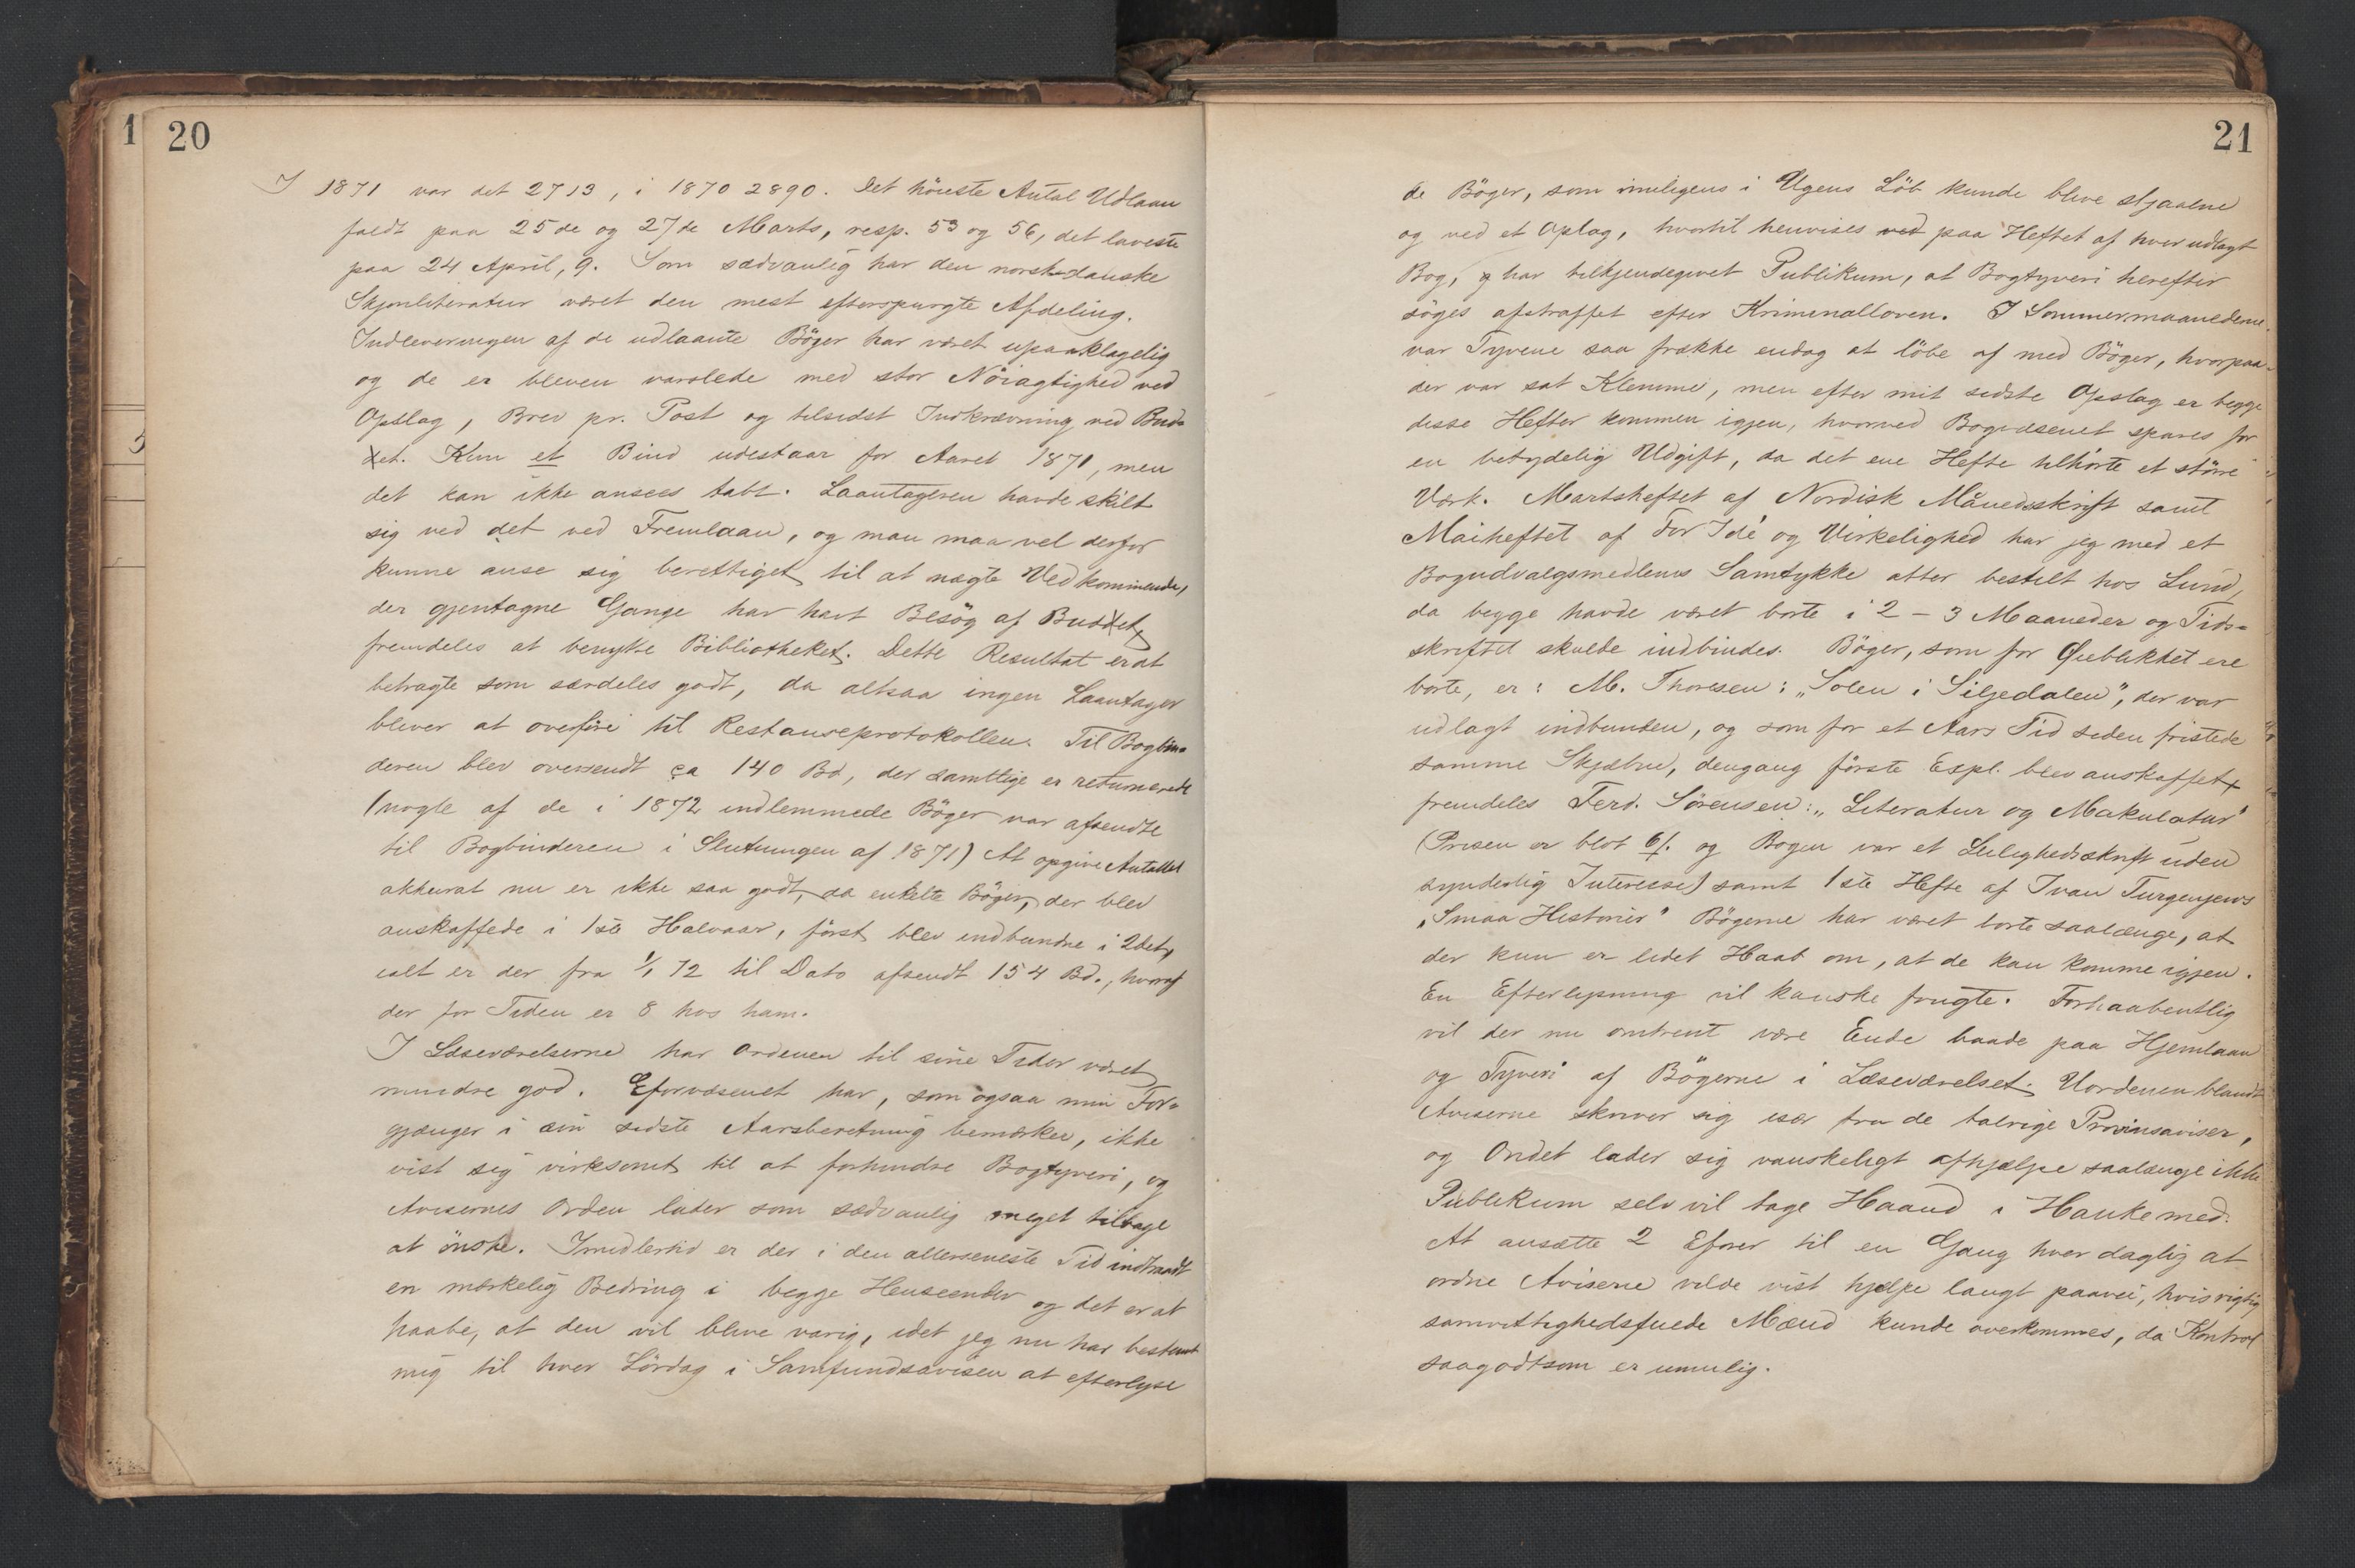 1
20
I 1871 var det 2713, i 1870 2890. Det höieste Antal Udlaan
faldt paa 25de og 27de Marts, resp. 53 og 56, det laveste
paa 24 April, 9. Som sædvanlig har den norsk-danske
Skjønliteratur været den mest efterspurgte Afdeling.
Indleveringen af de udlaante Böger har været upaaklagelig
og de er bleven varslede med stor Nöiagtighed ved
Opslag, Brev pr. Post og tilsidst Indkrævning ved Bud-
det. Kun et Bind udestaar for Aaret 1871, men
det kan ikke ansees tabt. Laantageren havde skilt
sig ved det ved Fremlaan, og man maa vel derfor
kunne anse sig berettiget til at nægte Vedkommende,
der gjentagne Gange har havt Besög af Buddet,
fremdeles at benytte Bibliotheket. Dette Resultat er at
betragte som særdeles godt, da altsaa ingen Laantager
bliver at overföre til Restanseprotokollen. Til Bogbin-
deren blev oversendt ca 140 Bd, der samtlige er returnerede
(nogle af de i 1872 indlemmede Böger var afsendte
til Bogbinderen i Slutningen af 1871) At opgive Antallet
akkurat nu er ikke saa godt, da enkelte Böger, der blev
anskaffede i 1ste Halvaar, först blev indbundne i 2det,
ialt er der fra 1/1 72 til Dato afsendt 154 Bd., hvoraf
der for Tiden er 8 hos ham.
I Læseværelserne har Ordenen til sine Tider været
mindre god. Eforvæsenet har, som ogsaa min For-
gjænger i sin sidste Aarsberetning bemærker, ikke
vist sig virksomt til at forhindre Bogtyveri, og
Avisernes Orden lader som sædvanlig meget tilbage
at önske. Imidlertid er der i den allerseneste Tid indtraadt
en mærkelig Bedring i begge Henseender og det er at
haabe, at den vil blive varig, idet jeg nu har bestemt
mig til hver Lördag i Samfundsavisen at efterlyse
21
de Böger, som muligens i Ugens Löb kunde blive stjaalne
og ved et Oplag, hvortil henvises ved paa Heftet af hver udlagt
Bog, og har tilkjendegivet Publikum, at Bogtyveri herefter
söges afstraffet efter Kriminalloven. I Sommermaanederne
var Tyvene saa frække endog at löbe af med Böger, hvorpaa
der var sat Klemme, men efter mit sidste Opslag er begge
disse Hefter kommen igjen, hvorved Bogvæsenet spares for
en betydelig Udgift, da det ene Hefte tilhörte et större
Værk. Martsheftet af Nordisk Månedsskrift samt
Maiheftet af For Idé og Virkelighed har jeg med et
Bogudvalgsmedlems Samtykke atter bestilt hos Lund,
da begge havde været borte i 2 – 3 Maaneder og Tids-
skriftet skulde indbindes. Böger, som for Øieblikket ere
borte, er: M. Thoresen: „Solen i Siljedalen", der var
udlagt indbunden, og som for et Aars Tid siden fristede
samme Skjæbne, dengang förste Expl. blev anskaffet,
fremdeles Ferd. Sörensen: „Literatur og Makulatur"
(Prisen er blot 6/. og Bogen var et Leilighedsskrift uden
synderlig Interesse) samt 1ste Hefte af Ivan Turgenjews
„Smaa Historier" Bögerne har været borte saalænge, at
der kun er lidet Haab om, at de kan komme igjen.
En Efterlysning vil kanske frugte. Forhaabentlig
vil der nu omtrent være Ende baade paa Hjemlaan
og Tyveri af Bögerne i Læseværelset. Uordenen blandt
Aviserne skriver sig især fra de talrige Provinsaviser,
og Ondet lader sig vanskeligt afhjælpe saalænge ikke
Publikum selv vil tage Haand i Hanke med.
At ansætte 2 Eforer til en Gang hver daglig at
ordne Aviserne vilde vist hjælpe langt paavei, hvis rigtig
samvittighedsfulde Mænd kunde overkommes, da Kontrol
saagodtsom er umulig.